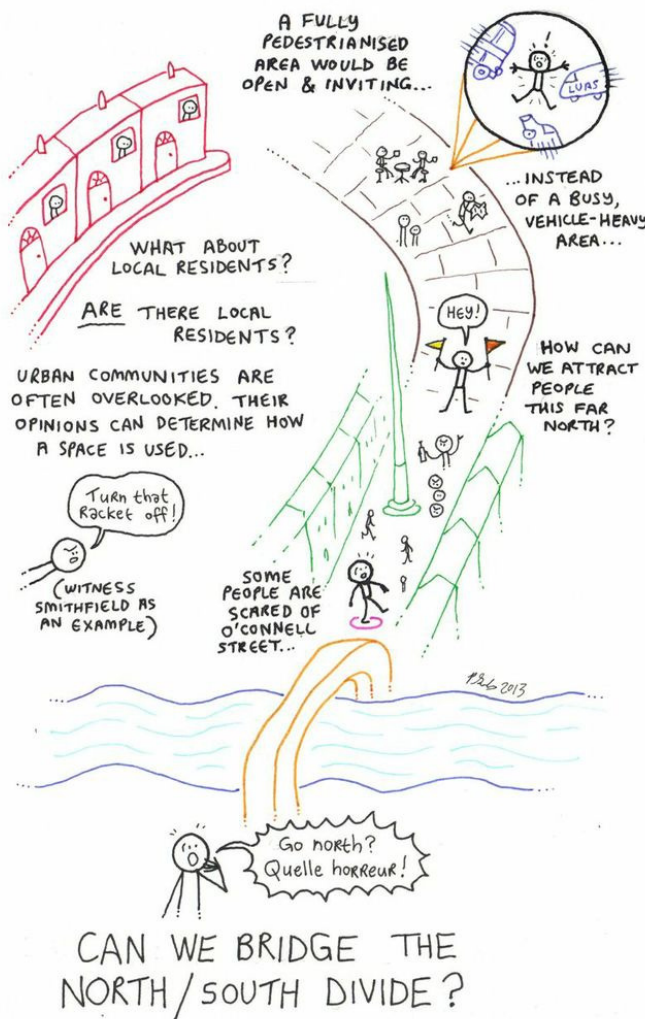 A FULLY
PEDESTRIANISED
AREA WOULD BE
OPEN & INVITING...
!
LUAS
...INSTEAD
OF A BUSY,
VEHICLE-HEAVY
AREA...
WHAT ABOUT
LOCAL RESIDENTS?
ARE THERE LOCAL
RESIDENTS?
URBAN COMMUNITIES ARE
OFTEN OVERLOOKED. THEIR
OPINIONS CAN DETERMINE HOW
A SPACE IS USED...
HEY!
HOW CAN
WE ATTRACT
PEOPLE
THIS FAR
NORTH?
Turn that
Racket off!
(WITNESS
SMITHFIELD AS
AN EXAMPLE)
SOME
PEOPLE ARE
SCARED OF
O'CONNELL
STREET...
2013
Go north?
Quelle horreur!
CAN WE BRIDGE THE
NORTH/SOUTH DIVIDE?